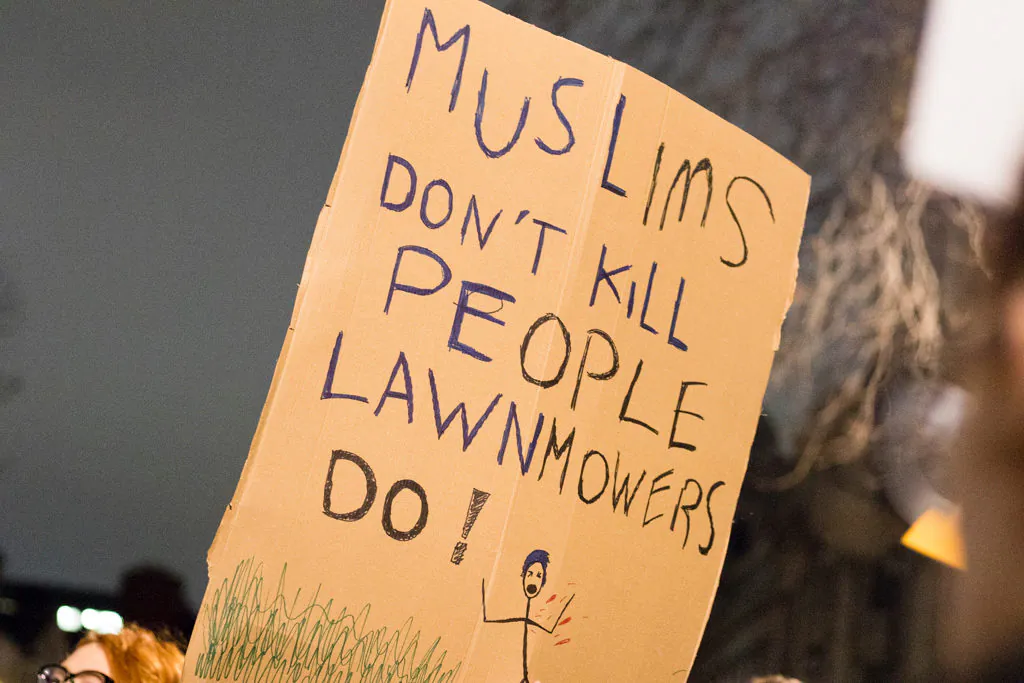 MUSLIMS
DON'T KILL
PEOPLE
LAWNMOWERS
DO!